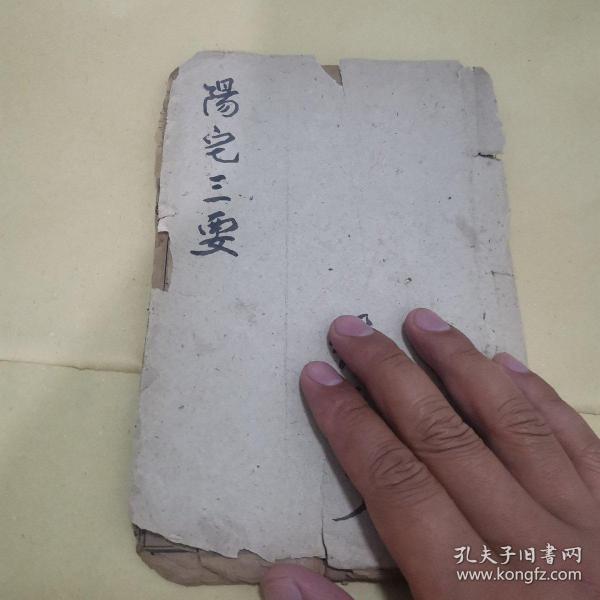 陽宅三要
孔夫子旧書网
www.kongfz.com